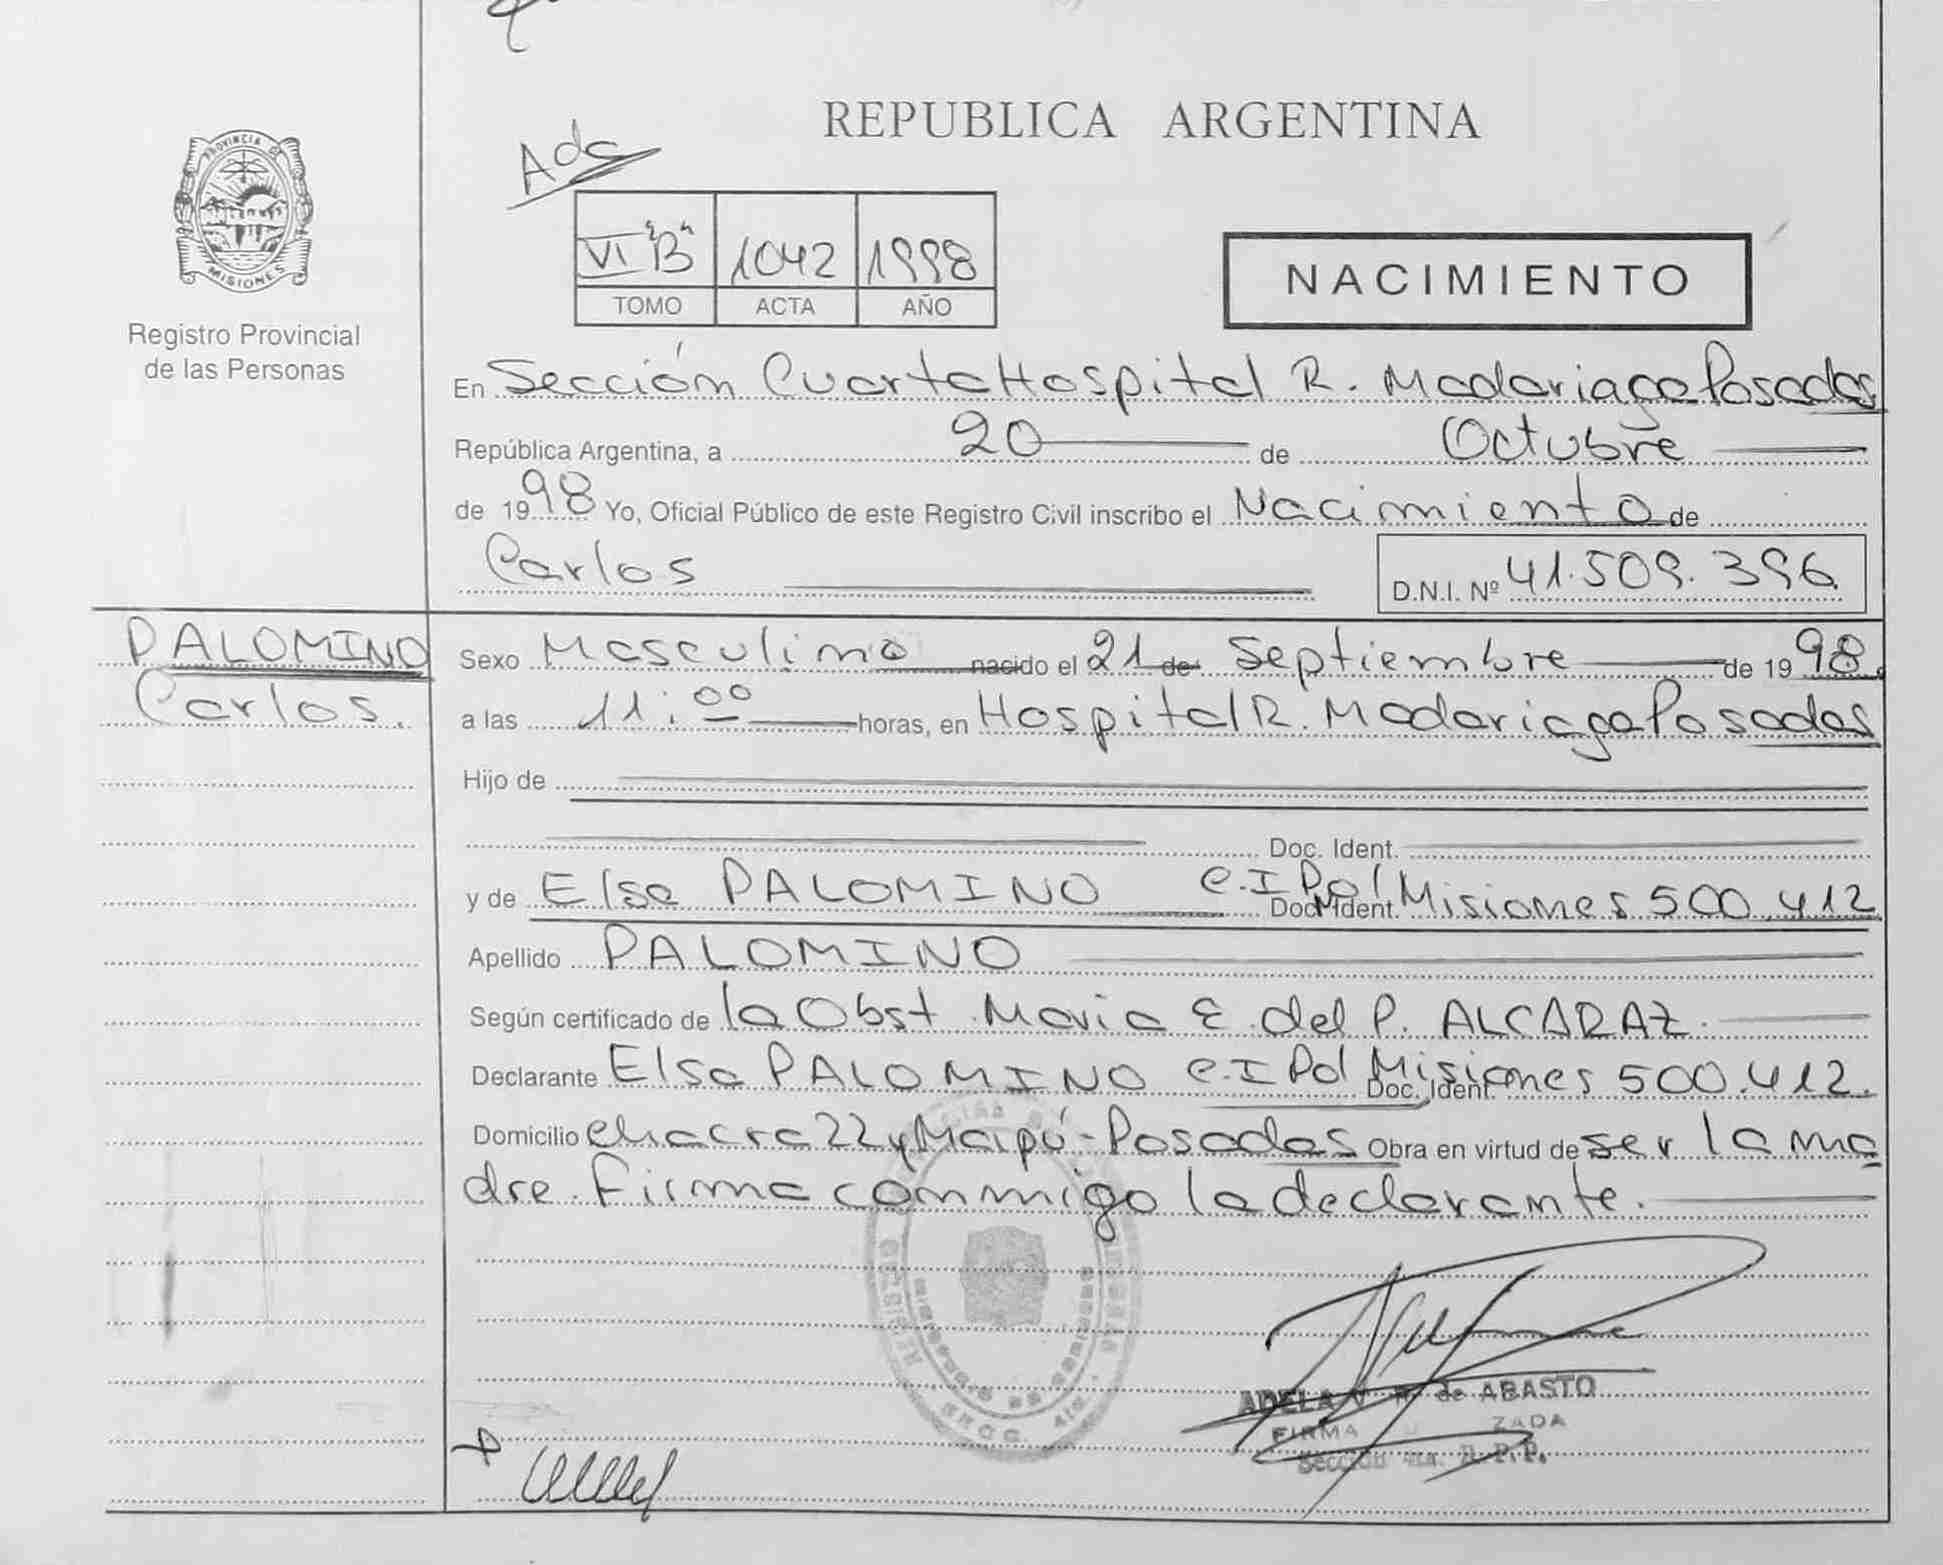 REPUBLICA ARGENTINA
PROVINCIA DE
MISIONES
Registro Provincial
de las Personas
Adc
VI "B" 1042 1998
TOMO ACTA AÑO
NACIMIENTO
En Sección Cuarta Hospital R. Madariaga Posadas
República Argentina, a 20 de Octubre
de 1998 Yo, Oficial Público de este Registro Civil inscribo el Nacimiento de
Carlos
D.N.I. Nº 41.509.396
PALOMINO
Carlos.
Sexo Masculino nacido el 21 de Septiembre de 1998.
a las 11:00 horas, en Hospital R. Madariaga Posadas
Hijo de
Doc. Ident.
y de Elsa PALOMINO Doc. Ident. C.I Pol Misiones 500.412
Apellido PALOMINO
Según certificado de la Obst. Maria E. del P. ALCARAZ.
Declarante Elsa PALOMINO Doc. Ident. C.I Pol Misiones 500.412.
Domicilio Chacra 22 y Maipú - Posadas Obra en virtud de ser la ma
dre. Firma conmigo la declarante.
ADELA de ABASTO
FIRMA ZADA
Sección 4ta. R.P.P.